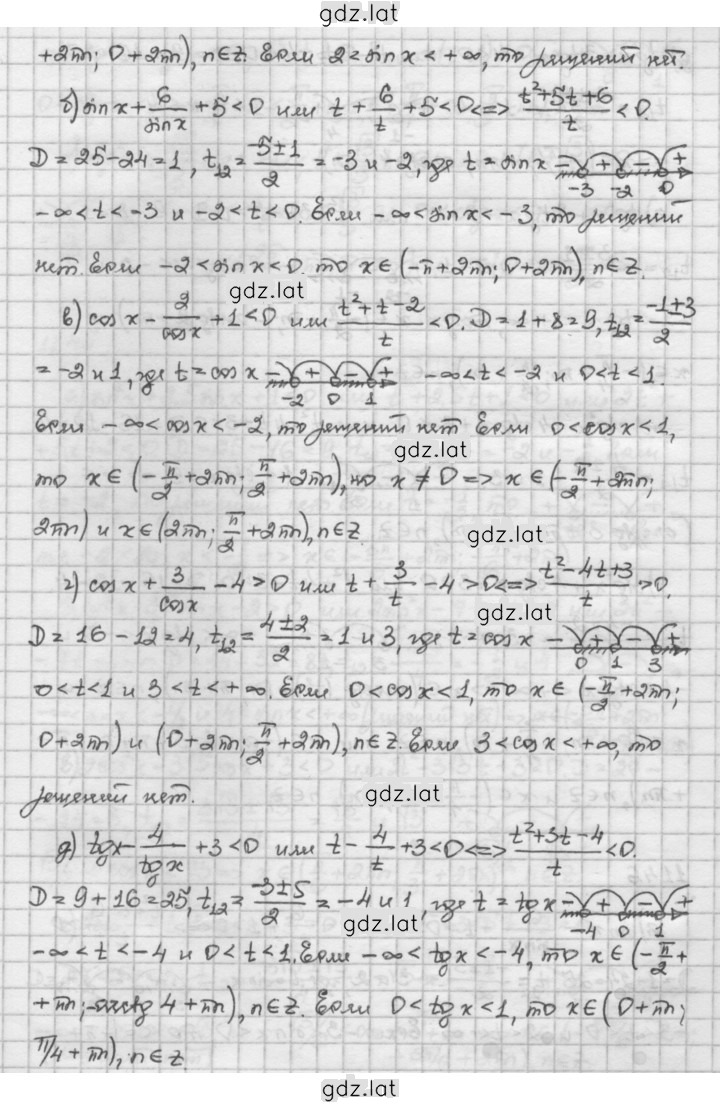 gdz.lat
+2πn; 0+2πn), n∈Z. Если 2<sin x<+∞, то решений нет.
б) sin x + 6/sin x + 5 < 0 или t + 6/t + 5 < 0 <=> (t²+5t+6)/t < 0.
D = 25-24 = 1, t₁₂ = (-5±1)/2 = -3 и -2, где t = sin x − + − + -3 -2 0
-∞<t<-3 и -2<t<0. Если -∞<sin x<-3, то решений
нет. Если -2<sin x<0. то x∈(-π+2πn; 0+2πn), n∈Z.
gdz.lat
в) cos x - 2/cos x + 1 < 0 или (t²+t-2)/t < 0. D = 1+8 = 9, t₁₂ = (-1±3)/2
= -2 и 1, где t = cos x − + − + -2 0 1 -∞<t<-2 и 0<t<1.
Если -∞<cos x<-2, то решений нет Если 0<cos x<1,
gdz.lat
то x∈(-π/2+2πn; π/2+2πn), но x≠0 => x∈(-π/2+2πn;
2πn) и x∈(2πn; π/2+2πn), n∈Z
gdz.lat
г) cos x + 3/cos x - 4 > 0 или t + 3/t - 4 > 0 <=> (t²-4t+3)/t > 0.
gdz.lat
D = 16-12 = 4, t₁₂ = (4±2)/2 = 1 и 3, где t = cos x − + − + 0 1 3
0<t<1 и 3<t<+∞. Если 0<cos x<1, то x∈(-π/2+2πn;
0+2πn) и (0+2πn; π/2+2πn), n∈Z. Если 3<cos x<+∞, то
решений нет.
gdz.lat
д) tg x - 4/tg x + 3 < 0 или t - 4/t + 3 < 0 <=> (t²+3t-4)/t < 0.
D = 9+16 = 25, t₁₂ = (-3±5)/2 = -4 и 1, где t = tg x − + − + -4 0 1
gdz.lat
-∞<t<-4 и 0<t<1. Если -∞<tg x<-4, то x∈(-π/2+
+πn; -arctg 4+πn), n∈Z. Если 0<tg x<1, то x∈(0+πn;
π/4+πn), n∈Z.
gdz.lat